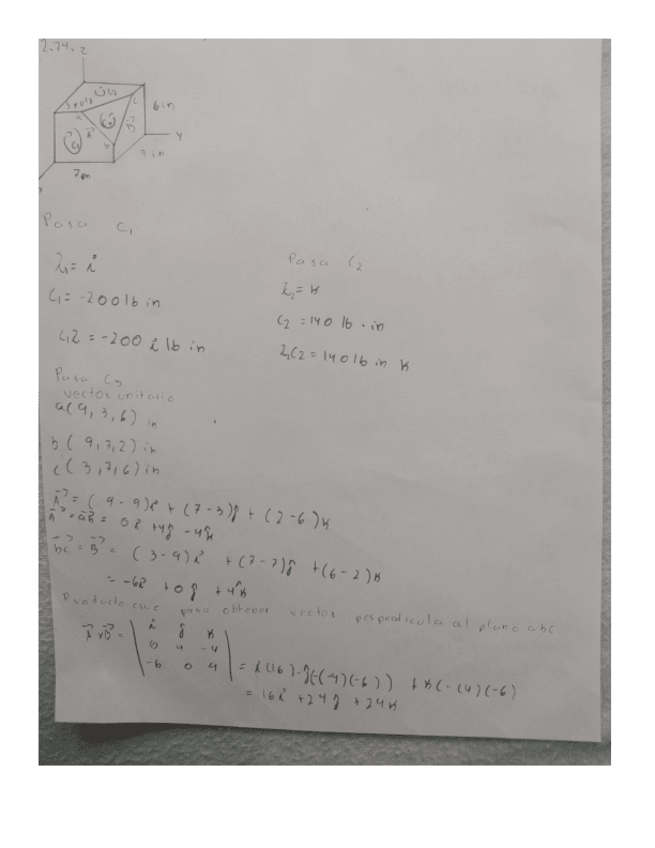 2.74.
z
6 in
C3
A
B
Y
C1
7 in
7 in
Para C1
λ1 = i
C1 = -200 lb in
C1λ = -200 i lb in
Para C2
λ2 = K
C2 = 140 lb · in
λ2C2 = 140 lb in K
Para C3
vector unitario
a(9,3,6) in
b(9,7,2) in
c(3,7,6) in
A = (9-9)i + (7-3)j + (2-6)K
A = ab = 0i + 4j - 4k
bc = B = (3-9)i + (7-7)j + (6-2)K
= -6i + 0j + 4k
Producto cruz para obtener vector perpendicula al plano abc
A x B = | i j K
0 4 -4
-6 0 4 | = i(16) - j(-(-4)(-6)) + K(-(4)(-6)
= 16i + 24j + 24K